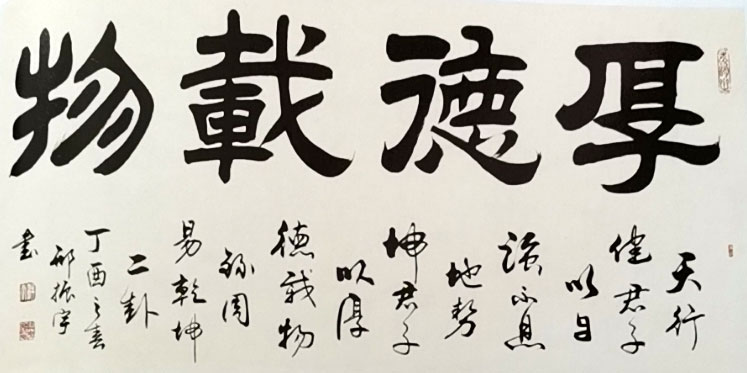 厚德載物
天行
健君子
以自
强不息
地勢
坤君子
以厚
德載物
錄周
易乾坤
二卦
丁酉之春
振宇
書